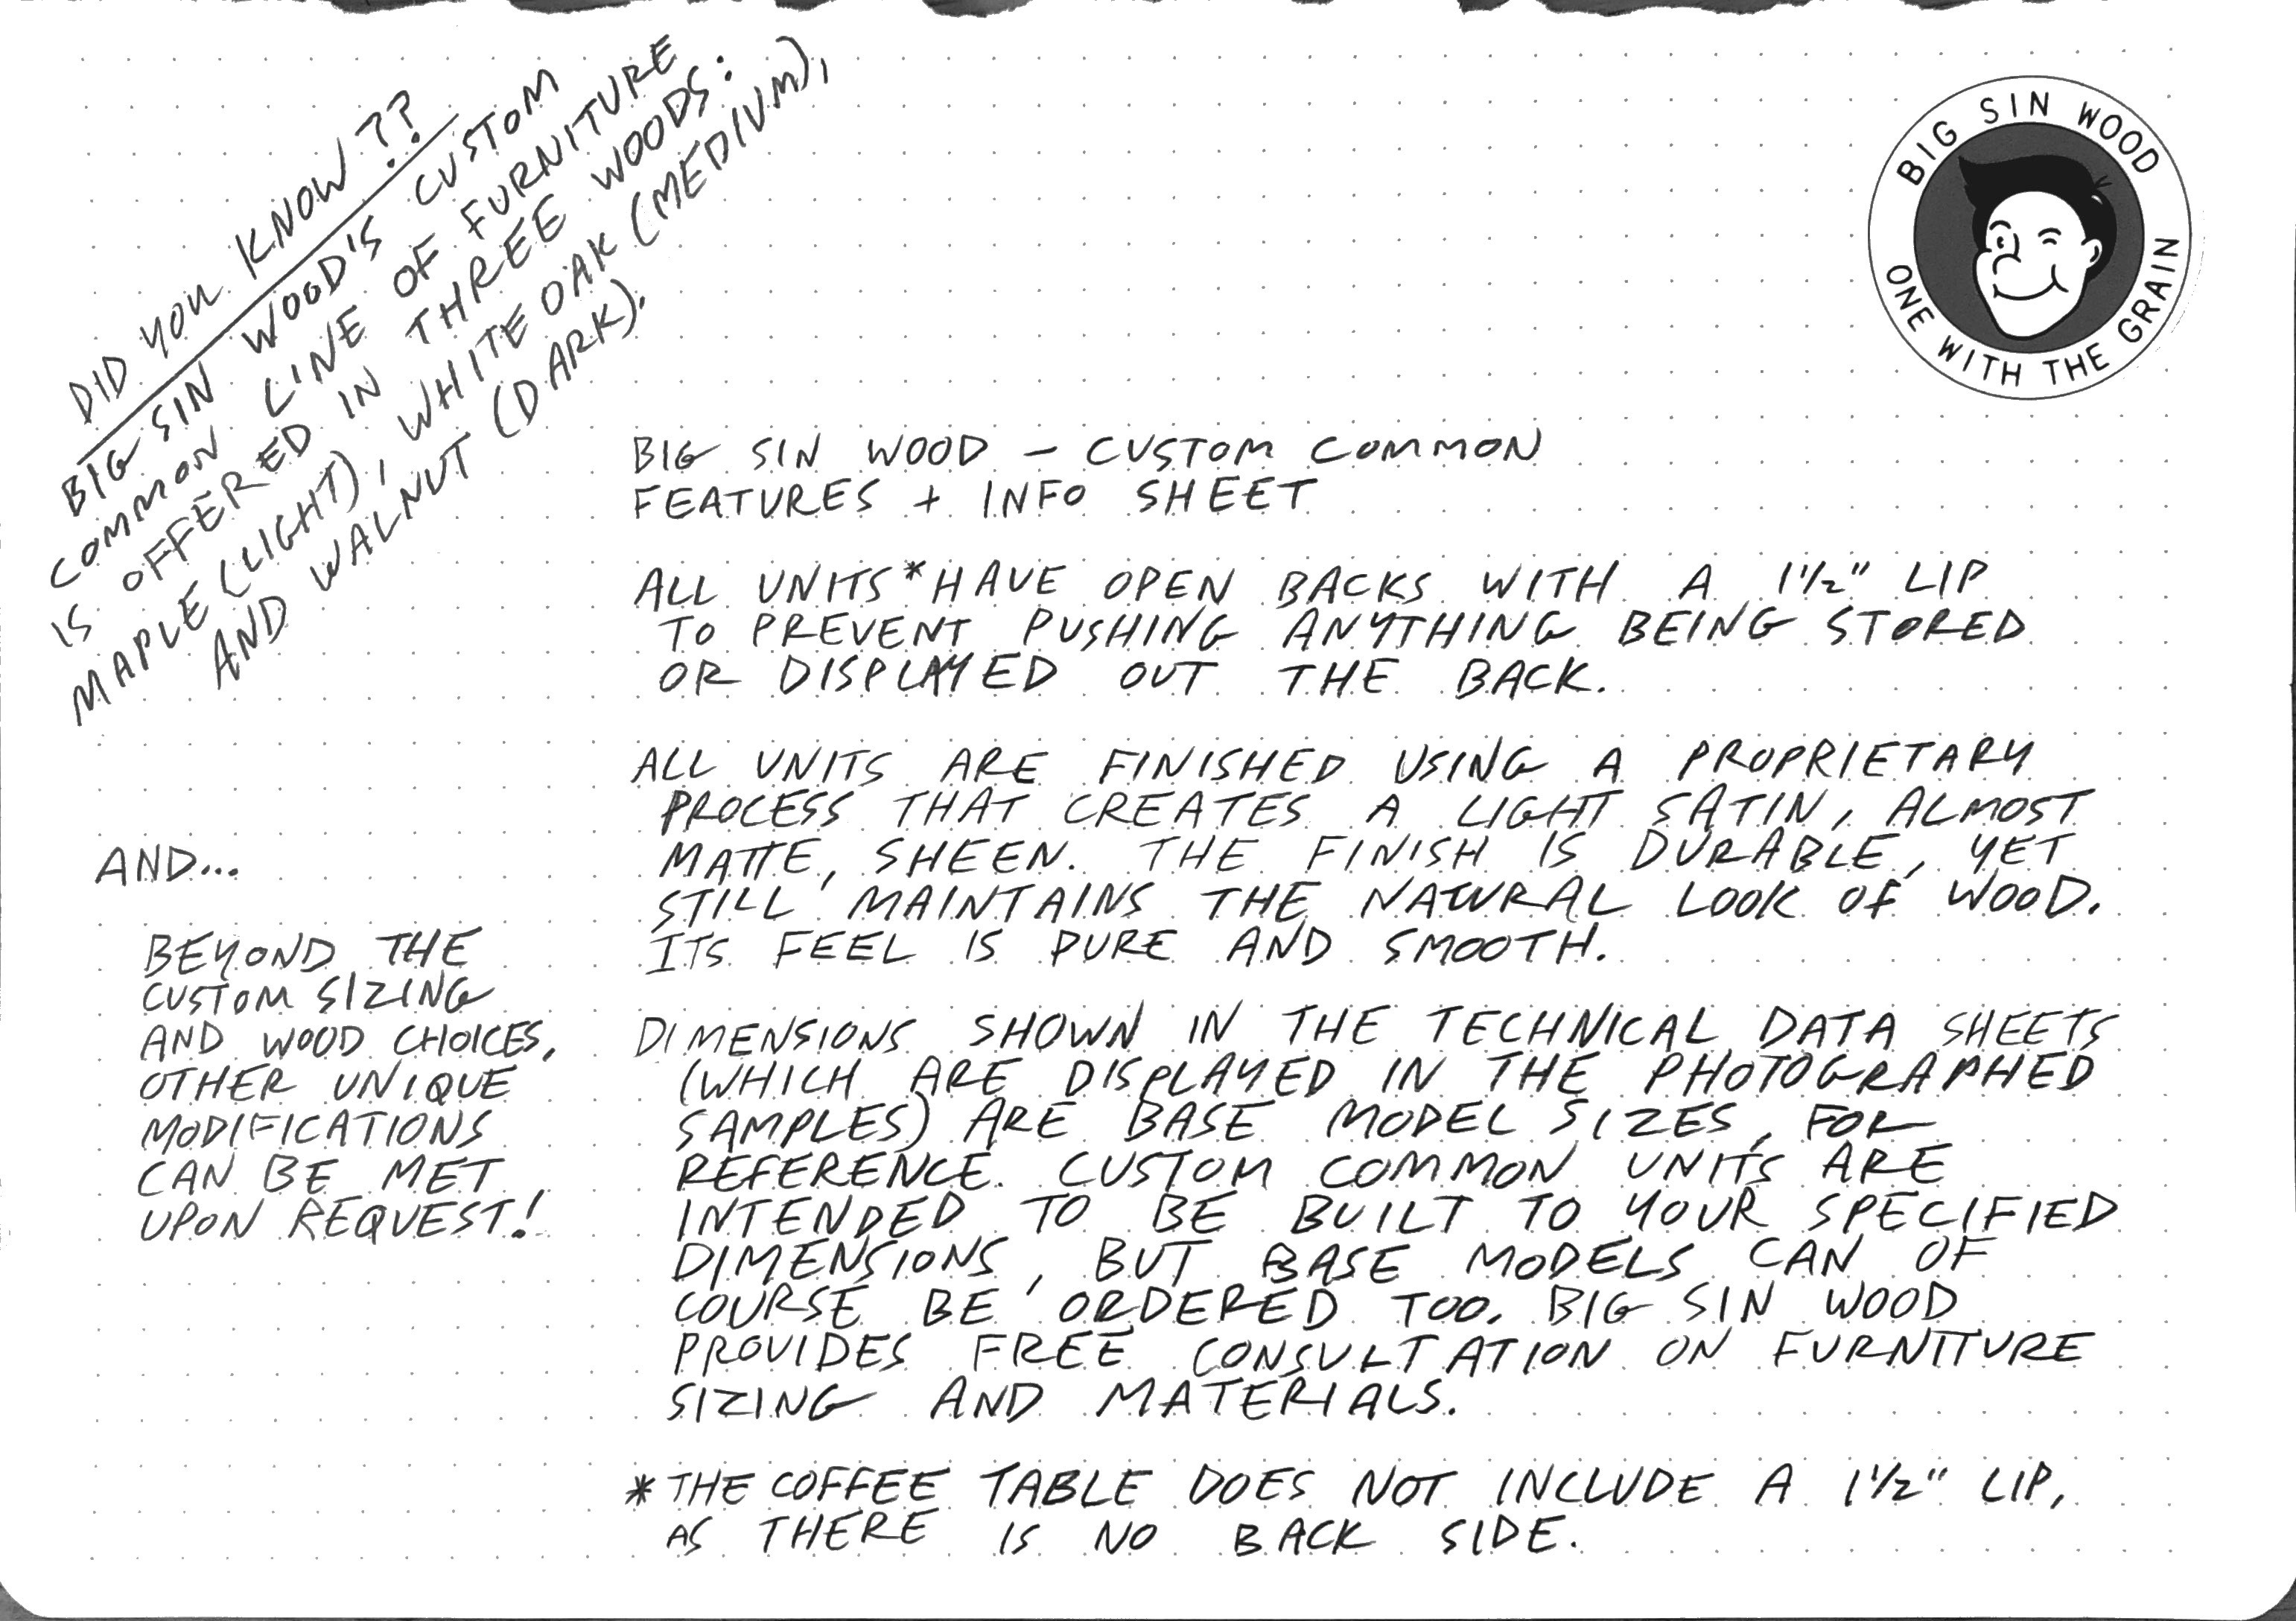 DID YOU KNOW??
BIG SIN WOOD'S CUSTOM
COMMON LINE OF FURNITURE
IS OFFERED IN THREE WOODS:
MAPLE (LIGHT), WHITE OAK (MEDIUM),
AND WALNUT (DARK).
BIG SIN WOOD
ONE WITH THE GRAIN
BIG SIN WOOD – CUSTOM COMMON
FEATURES + INFO SHEET
ALL UNITS* HAVE OPEN BACKS WITH A 1 1/2" LIP
TO PREVENT PUSHING ANYTHING BEING STORED
OR DISPLAYED OUT THE BACK.
ALL UNITS ARE FINISHED USING A PROPRIETARY
PROCESS THAT CREATES A LIGHT SATIN, ALMOST
MATTE, SHEEN. THE FINISH IS DURABLE, YET
STILL MAINTAINS THE NATURAL LOOK OF WOOD.
ITS FEEL IS PURE AND SMOOTH.
DIMENSIONS SHOWN IN THE TECHNICAL DATA SHEETS
(WHICH ARE DISPLAYED IN THE PHOTOGRAPHED
SAMPLES) ARE BASE MODEL SIZES, FOR
REFERENCE. CUSTOM COMMON UNITS ARE
INTENDED TO BE BUILT TO YOUR SPECIFIED
DIMENSIONS, BUT BASE MODELS CAN OF
COURSE BE ORDERED TOO. BIG SIN WOOD
PROVIDES FREE CONSULTATION ON FURNITURE
SIZING AND MATERIALS.
* THE COFFEE TABLE DOES NOT INCLUDE A 1 1/2" LIP,
AS THERE IS NO BACK SIDE.
AND...
BEYOND THE
CUSTOM SIZING
AND WOOD CHOICES,
OTHER UNIQUE
MODIFICATIONS
CAN BE MET
UPON REQUEST!